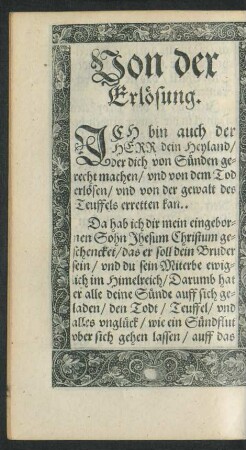 Von der
Erlösung.
ICH bin auch der
HERR dein Heyland/
der dich von Sünden ge-
recht machen/ vnd von dem Tod
erlösen/ vnd von der gewalt des
Teuffels erretten kan..
Da hab ich dir mein eingebor-
nen Sohn Jhesum Christum ge-
schencket/ das er soll dein Bruder
sein/ vnd du sein Miterbe ewig-
lich im Himelreich/ Darumb hat
er alle deine Sünde auff sich ge-
laden/ den Todt/ Teuffel/ vnd
alles vnglück/ wie ein Sündflut
vber sich gehen lassen/ auff das